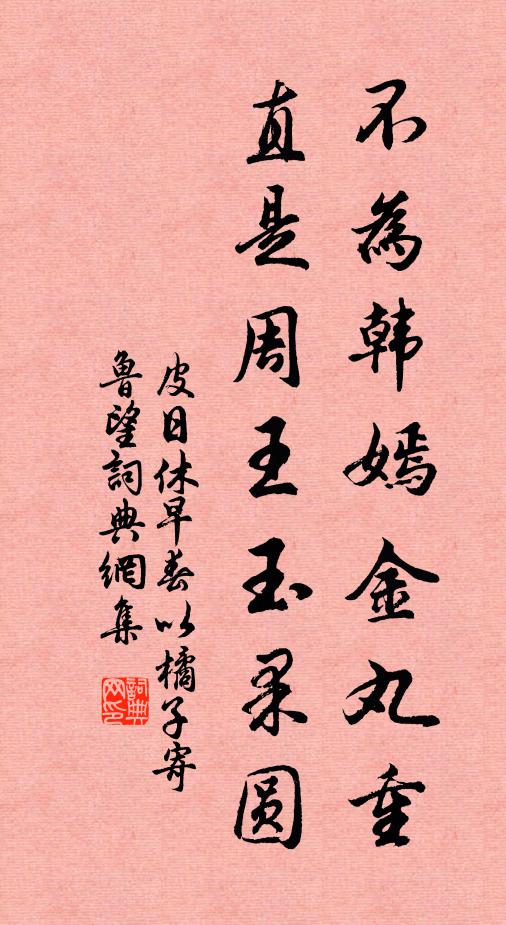 不為韩嫣金丸重
直是周王玉果圆
皮日休早春以橘子寄
魯望詞典網集
詞典网印